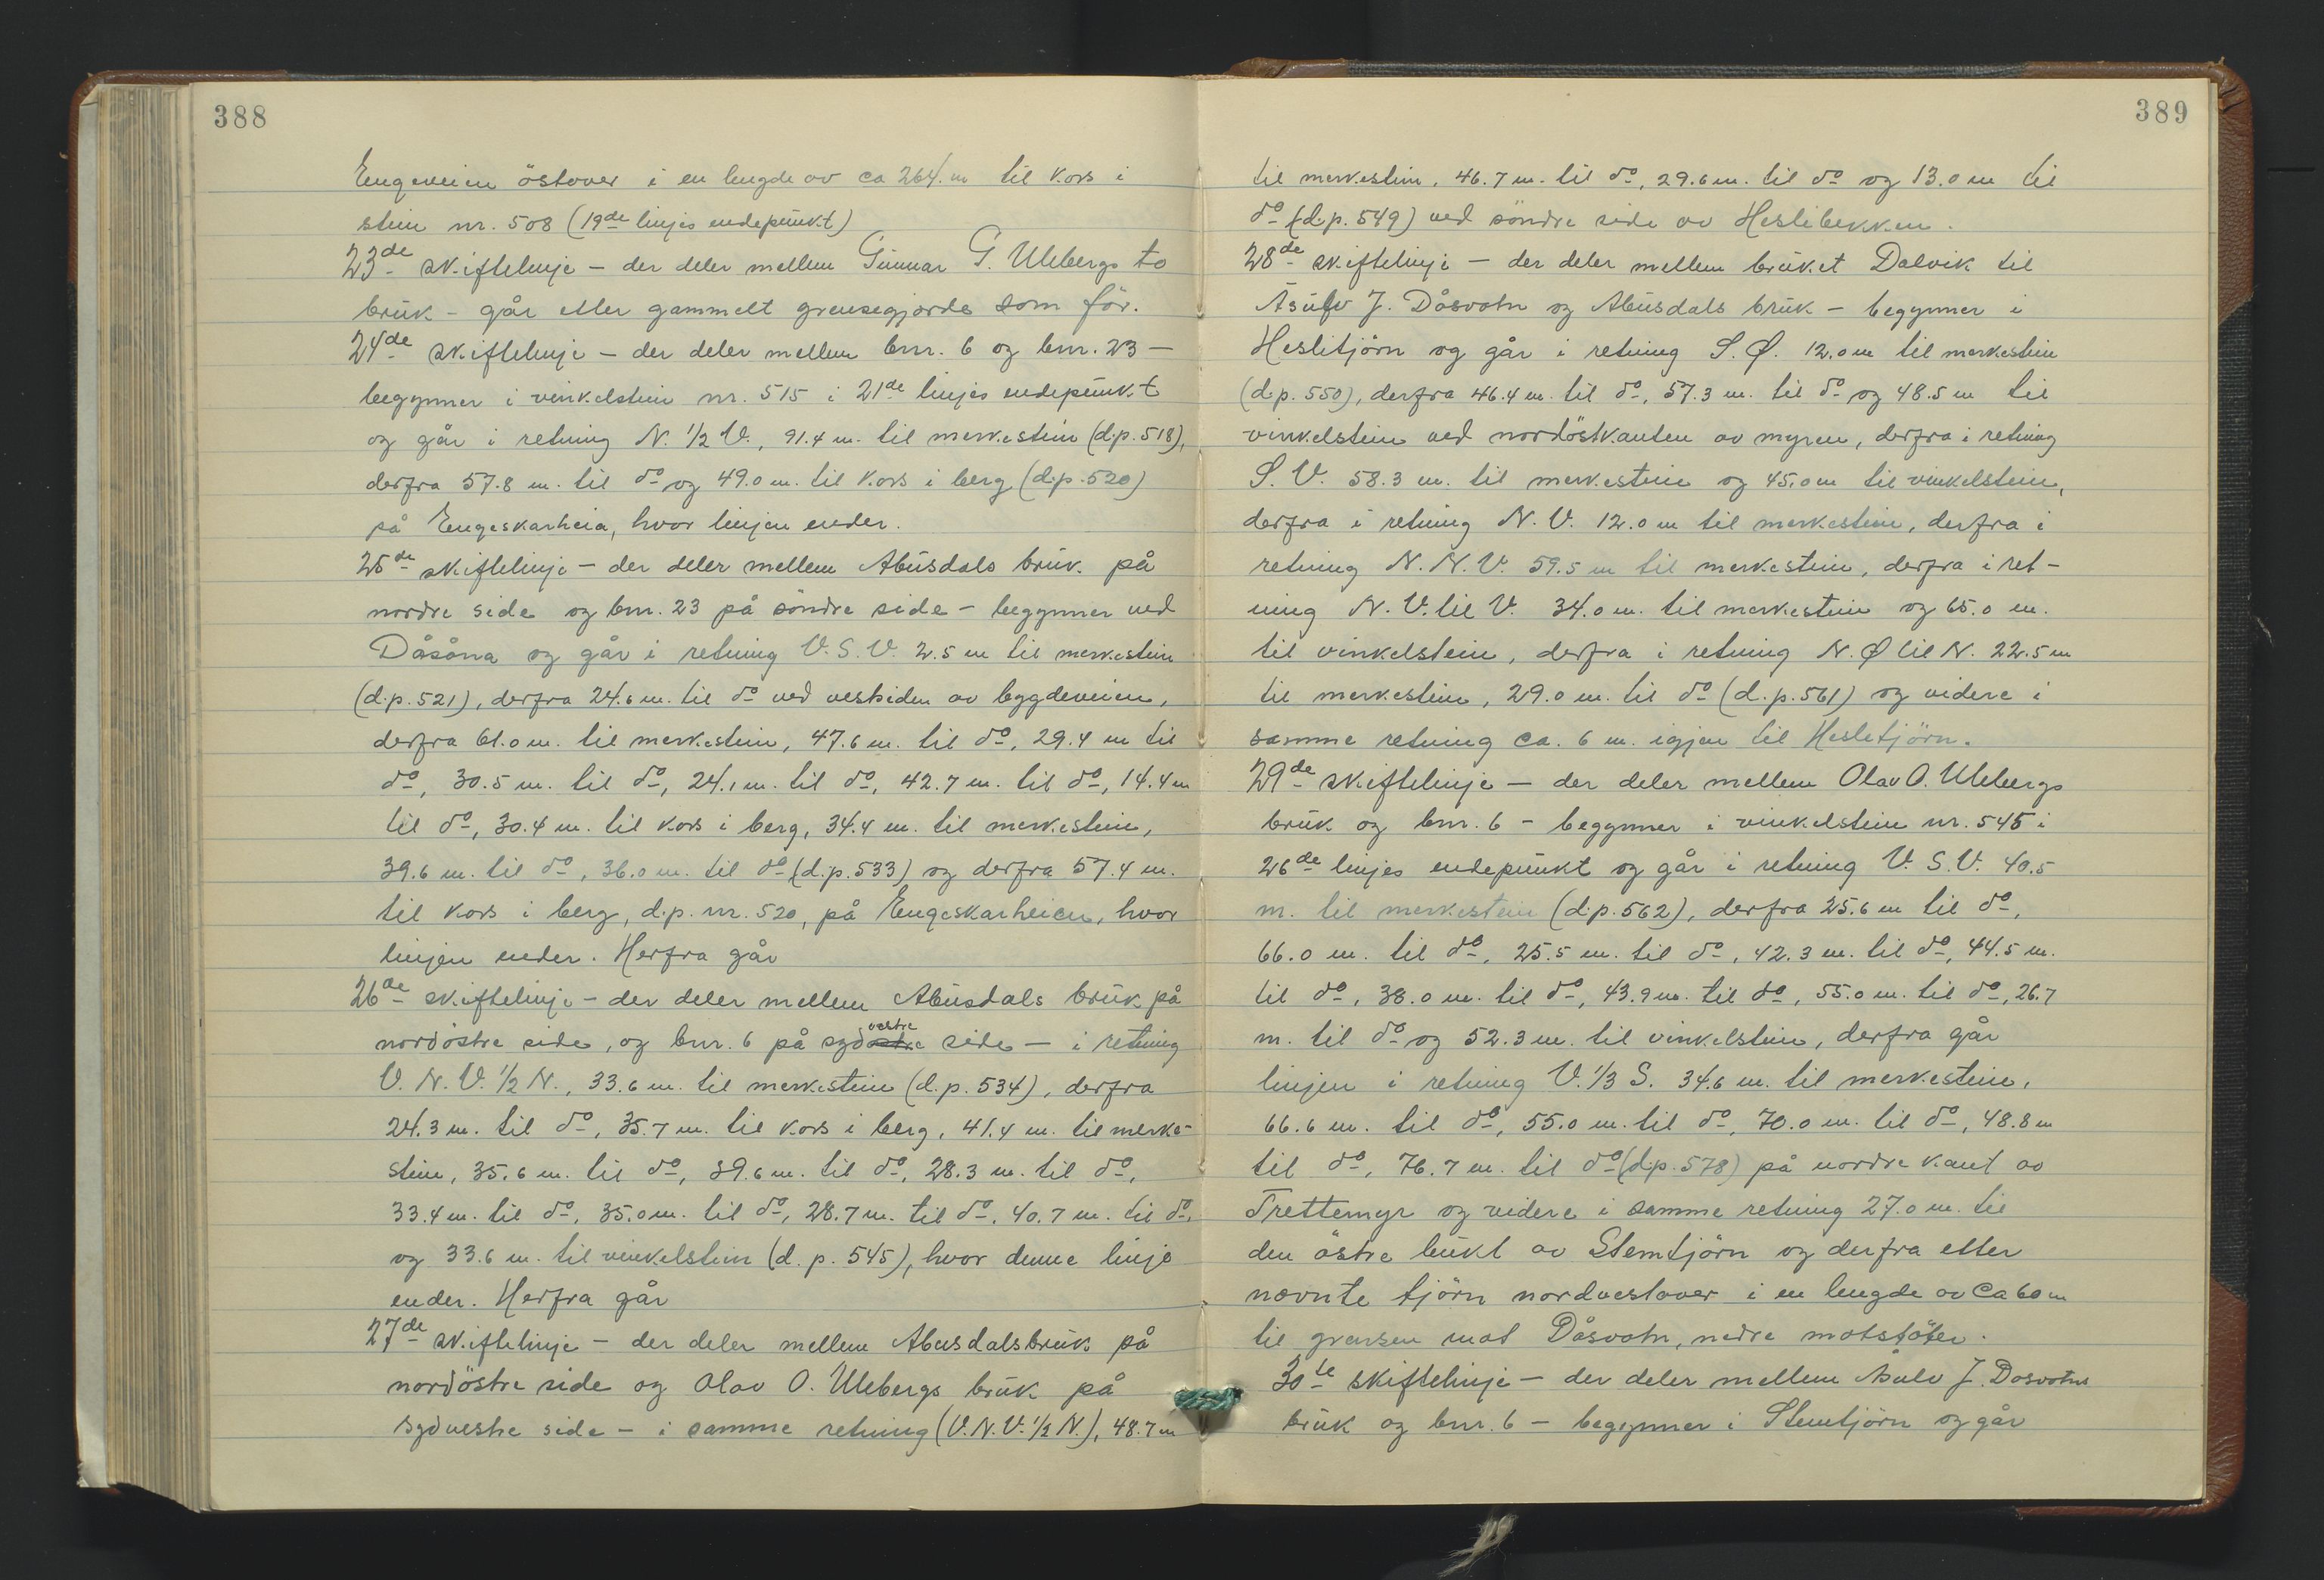 388
Engeveien östover i en lengde av ca 264. m til kors i
stein nr. 508 (19de linjes endepunkt)
23de skiftelinje – der deler mellem Gunnar G. Ulebergs to
bruk – går etter gammelt grensegjerde som för.
24de skiftelinje – der deler mellem bnr. 6 og bnr. 23 –
begynner i vinkelstein nr. 515 i 21de linjes endepunkt
og går i retning N. 1/2 V., 91.4 m. til merkestein (d.p. 518),
derfra 57.8 m. til do og 49.0 m. til kors i berg (d.p. 520)
på Engeskarheia, hvor linjen ender.
25de skiftelinje – der deler mellem Abusdals bruk på
nordre side og bnr. 23 på söndre side – begynner ved
Dåsåna og går i retning V.S.V. 2.5 m til merkestein
(d.p. 521), derfra 24.6 m. til do ved vestsiden av bygdeveien,
derfra 61.0 m. til merkestein, 47.6 m. til do, 29.4 m til
do, 30.5 m. til do, 24.1 m. til do, 42.7 m. til do, 14.4 m
til do, 30.4 m. til kors i berg, 34.4 m. til merkestein,
39.6 m. til do, 36.0 m. til do (d.p. 533) og derfra 57.4 m.
til kors i berg, d.p. nr. 520, på Engeskarheien, hvor
linjen ender. Herfra går
26de skiftelinje – der deler mellem Abusdals bruk på
nordöstre side, og bnr. 6 på sydvestre side – i retning
V. N. V. 1/2 N., 33.6 m. til merkestein (d.p. 534), derfra
24.3 m. til do, 35.7 m. til kors i berg, 41.4 m. til merke-
stein, 35.6 m. til do, 39.6 m. til do, 28.3 m. til do,
33.4 m. til do, 35.0 m. til do, 28.7 m. til do, 40.7 m. til do,
og 33.6 m. til vinkelstein (d. p. 545), hvor denne linje
ender. Herfra går
27de skiftelinje – der deler mellem Abusdalsbruk på
nordöstre side og Olav O. Ulebergs bruk på
sydvestre side – i samme retning (V.N.V. 1/2 N.), 48.7 m
389
til merkestein, 46.7 m. til do, 29.6 m. til do og 13.0 m til
do (d.p. 549) ved söndre side av Heslibekken.
28de skiftelinje – der deler mellem bruket Dalvik til
Åsulv J. Dåsvatn og Abusdals bruk – begynner i
Heslitjörn og går i retning S. Ø. 12.0 m til merkestein
(d.p. 550), derfra 46.4 m. til do, 57.3 m. til do og 48.5 m til
vinkelstein ved nordöstkanten av myren, derfra i retning
S. V. 58.3 m. til merkestein og 45.0 m til vinkelstein,
derfra i retning N. V. 12.0 m til merkestein, derfra i
retning N. N. V. 59.5 m til merkestein, derfra i ret-
ning N. V. til V. 34.0 m. til merkestein og 65.0 m.
til vinkelstein, derfra i retning N. Ø til N. 22.5 m
til merkestein, 29.0 m. til do (d.p. 561) og videre i
samme retning ca. 6 m. igjen til Heslitjörn.
29de skiftelinje – der deler mellem Olav O. Ulebergs
bruk og bnr. 6 – begynner i vinkelstein nr. 545 i
26de linjes endepunkt og går i retning V. S. V. 40.5
m. til merkestein (d.p. 562), derfra 25.6 m til do,
66.0 m. til do, 25.5 m. til do, 42.3 m. til do, 44.5 m.
til do, 38.0 m. til do, 43.9 m. til do, 55.0 m. til do, 26.7
m. til do og 52.3 m. til vinkelstein, derfra går
linjen i retning V. 1/3 S. 34.6 m. til merkestein,
66.6 m. til do, 55.0 m. til do, 70.0 m. til do, 48.8 m
til do, 76.7 m. til do (d.p. 578) på nordre kant av
Trettemyr og videre i samme retning 27.0 m. til
den östre bukt av Stemtjörn og derfra etter
nevnte tjörn nordvestover i en lengde av ca 60 m
til grensen mot Dåsvatn, nedre
30te skiftelinje – der deler mellem Åsulv J. Dåsvatns
bruk og bnr. 6 – begynner i Stemtjörn og går